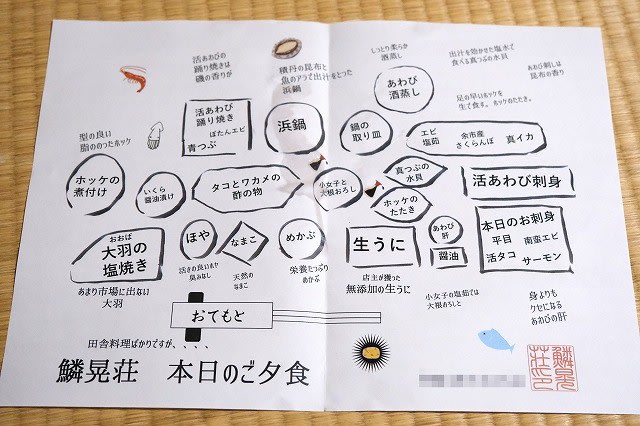 活あわびの
踊り焼きは
磯の香りが
積丹の昆布と
魚のアラで出汁をとった
浜鍋
しっとり柔らか
酒蒸し
出汁を効かせた塩水で
食べる真つぶの水貝
あわび刺しは
昆布の香り
あわび
酒蒸し
足の早いホッケを
生で食す。ホッケのたたき。
活あわび
踊り焼き
ぼたんエビ
青つぶ
浜鍋
鍋の
取り皿
エビ
塩茹
余市産
さくらんぼ
真イカ
型の良い
脂ののったホッケ
ホッケの
煮付け
いくら
醤油漬け
タコとワカメの
酢の物
小女子と
大根おろし
真つぶの
水貝
ホッケの
たたき
活あわび刺身
おおば
大羽の
塩焼き
ほや
なまこ
めかぶ
生うに
あわび
肝
醤油
本日のお刺身
平目 南蛮エビ
活タコ サーモン
あまり市場に出ない
大羽
活きの良いホヤ
臭みなし
天然の
なまこ
栄養たっぷり
めかぶ
店主が獲った
無添加の生うに
小女子の塩茹では
大根おろしと
身よりも
クセになる
あわびの肝
おてもと
田舎料理ばかりですが、、、、
鱗晃荘 本日のご夕食
鱗晃
荘印